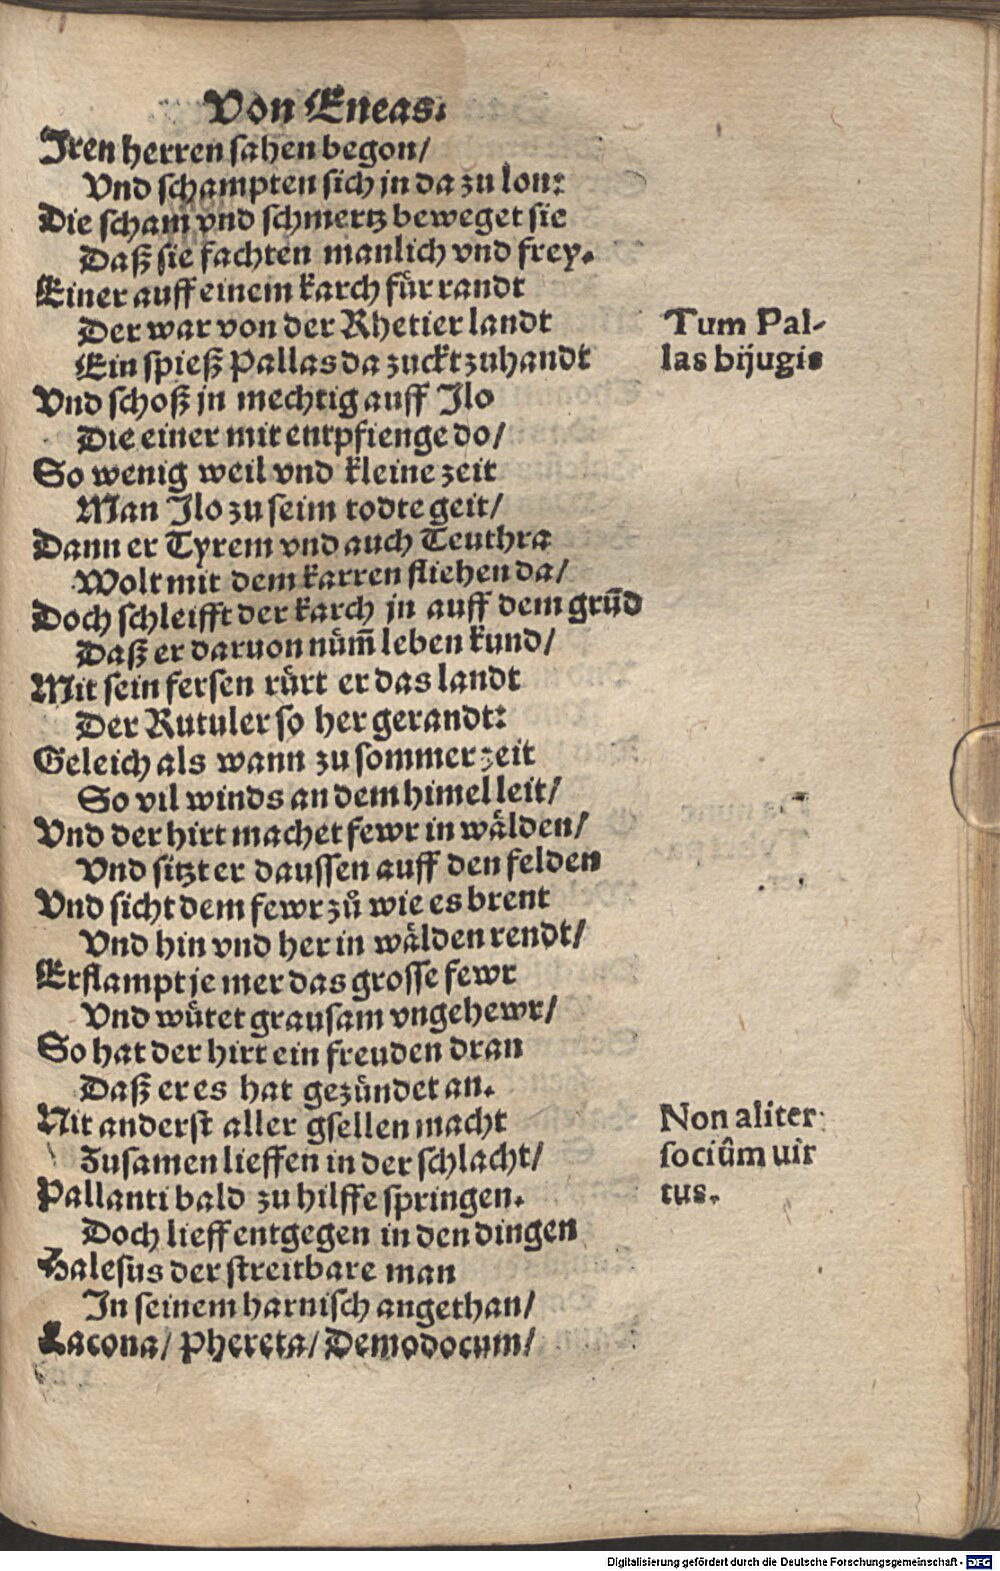 Von Eneas.
Jren herren sahen begon/
Vnd schampten sich jn da zu lon:
Die scham vnd schmertz beweget sie
Daß sie fachten manlich vnd frey.
Einer auff einem karch für randt
Der war von der Rhetier landt
Ein spieß Pallas da zuckt zuhandt
Vnd schoß jn mechtig auff Jlo
Die einer mit entpfienge do/
So wenig weil vnd kleine zeit
Man Jlo zu seim todte geit/
Dann er Tyrem vnd auch Teuthra
Wolt mit dem karren fliehen da/
Doch schleifft der karch jn auff dem grūd
Daß er daruon nüm̃ leben kund/
Mit sein fersen rürt er das landt
Der Rutuler so her gerandt:
Geleich als wann zu sommerzeit
So vil winds an dem himel leit/
Vnd der hirt machet fewr in wälden/
Vnd sitzt er daussen auff den felden
Vnd sicht dem fewr zů wie es brent
Vnd hin vnd her in wälden rendt/
Erflampt je mer das grosse fewr
Vnd wütet grausam vngehewr/
So hat der hirt ein freuden dran
Daß er es hat gezündet an.
Nit anderst aller gsellen macht
Zusamen lieffen in der schlacht/
Pallanti bald zu hilffe springen.
Doch lieff entgegen in den dingen
Halesus der streitbare man
In seinem harnisch angethan/
Lacona/ Phereta/ Demodocum/
Tum Pal-
las bijugis
Non aliter
sociûm uir
tus.
Digitalisierung gefördert durch die Deutsche Forschungsgemeinschaft - DFG